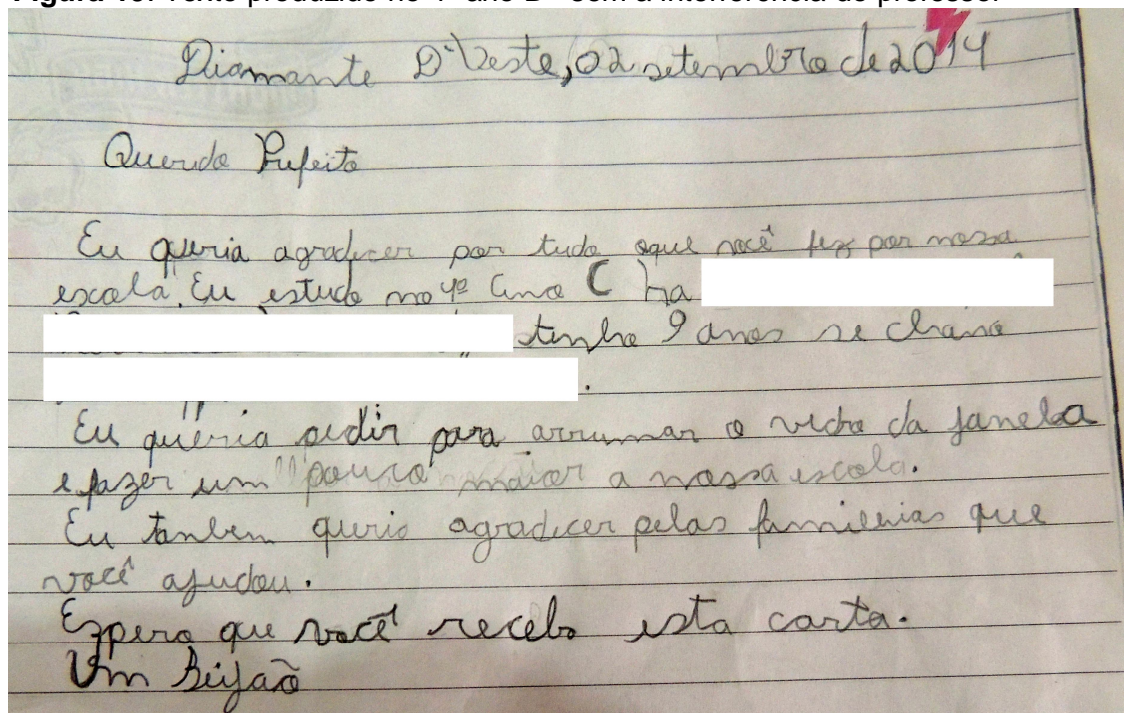 Diamante D'Oeste, 02 setembro de 2014
Querido Prefeito
Eu queria agradecer por tudo oque você fez por nossa
escola. Eu estudo no 4º Ano C ha
tenho 9 anos se chamo
.
Eu queria pedir para arrumar o vidro da janela
e fazer um pouco maior a nossa escola.
Eu tanben queria agradicer pelas familias que
você ajudou.
Espero que você receba esta carta.
Um Beijão